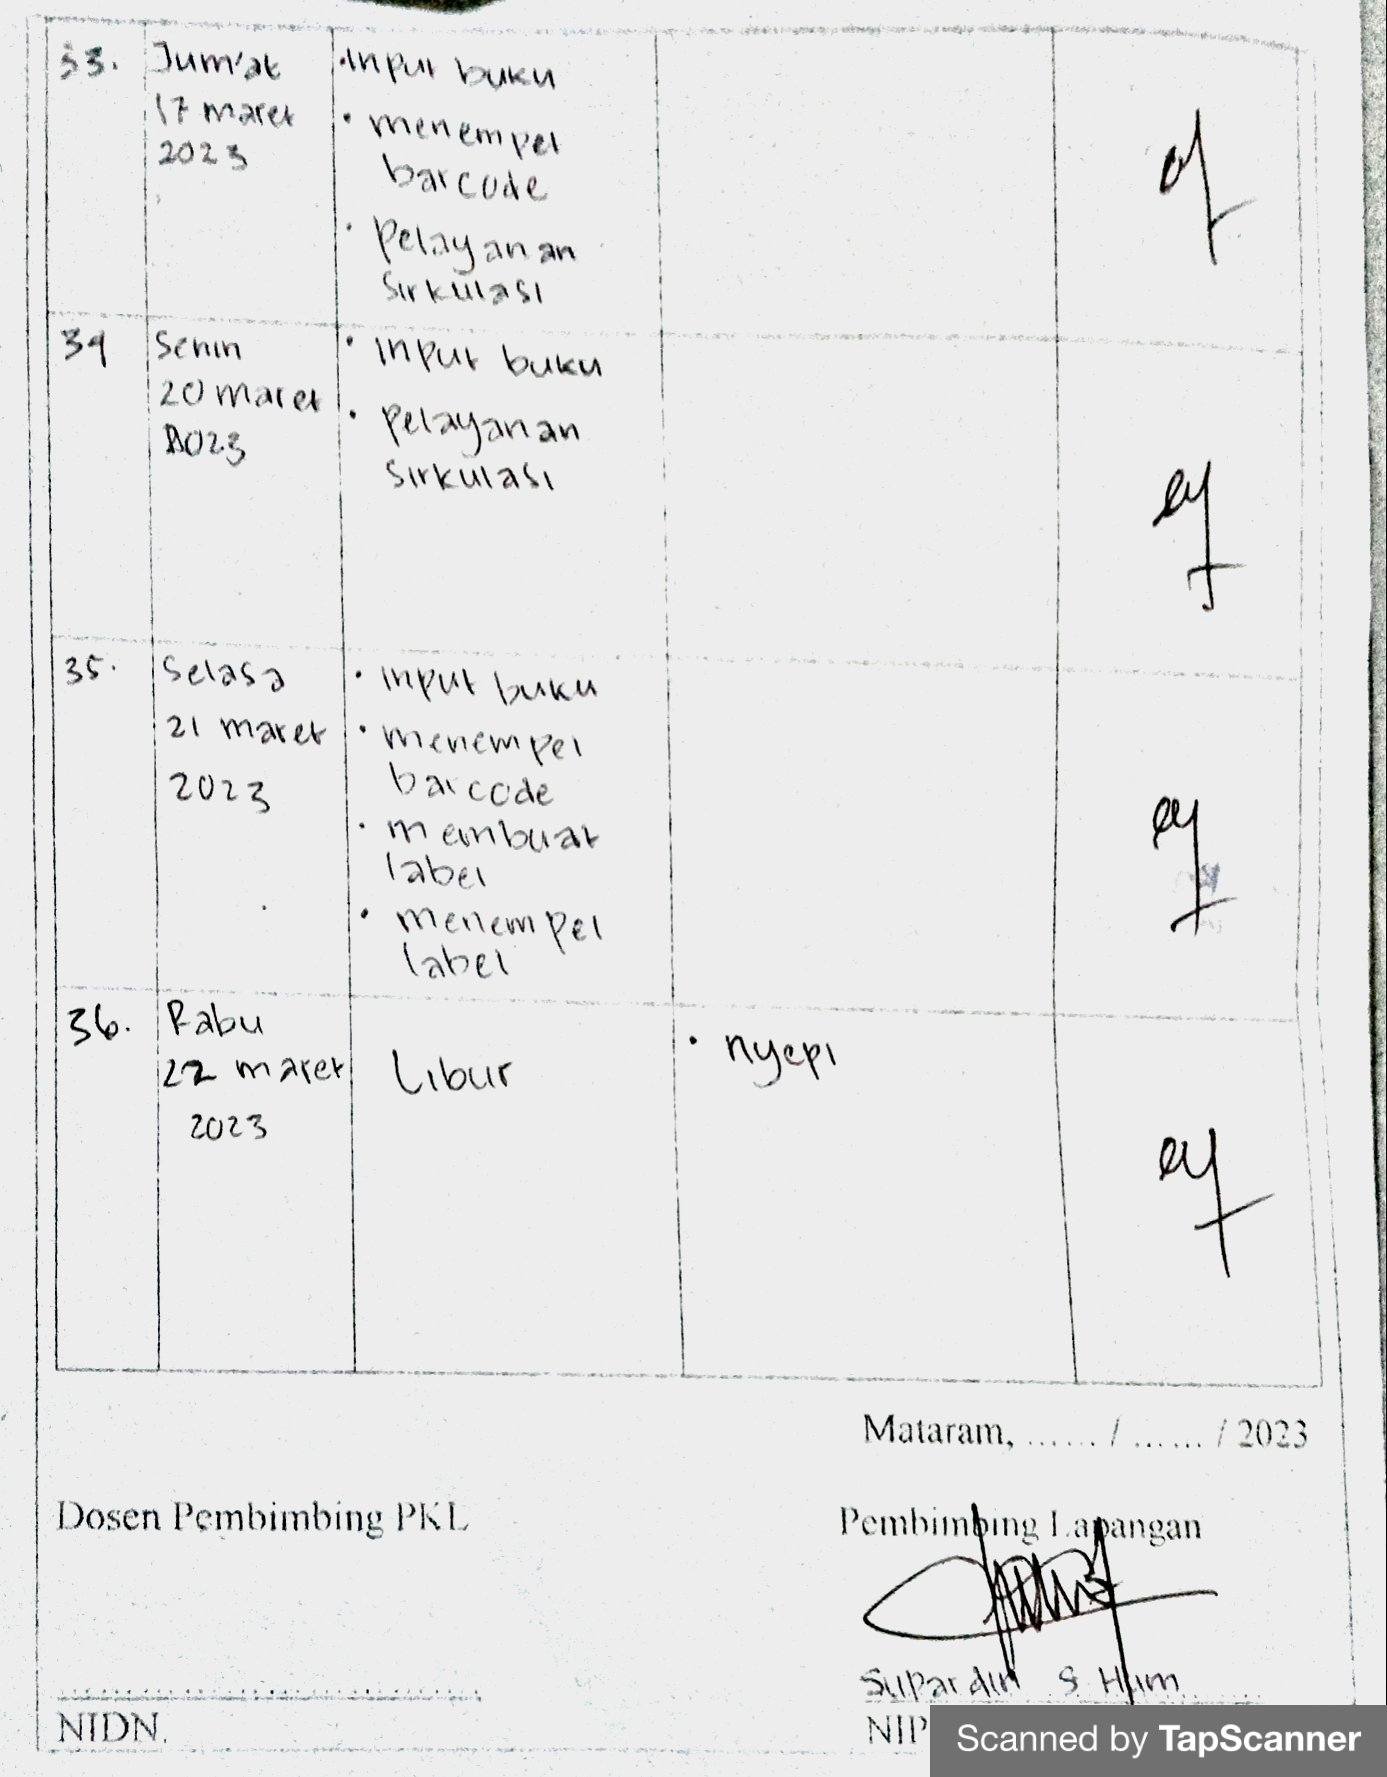 33. Jum'at
17 maret
2023
• Input buku
• menempel
barcode
• Pelayanan
sirkulasi
34 Senin
20 maret
2023
• Input buku
• Pelayanan
sirkulasi
35. Selasa
21 maret
2023
• Input buku
• menempel
barcode
• membuat
label
• menempel
label
36. Rabu
22 maret
2023
Libur
• nyepi
Mataram, ...... / ...... / 2023
Dosen Pembimbing PKL
Pembimbing Lapangan
Supardin S. Hum
NIDN.
NIP
Scanned by TapScanner